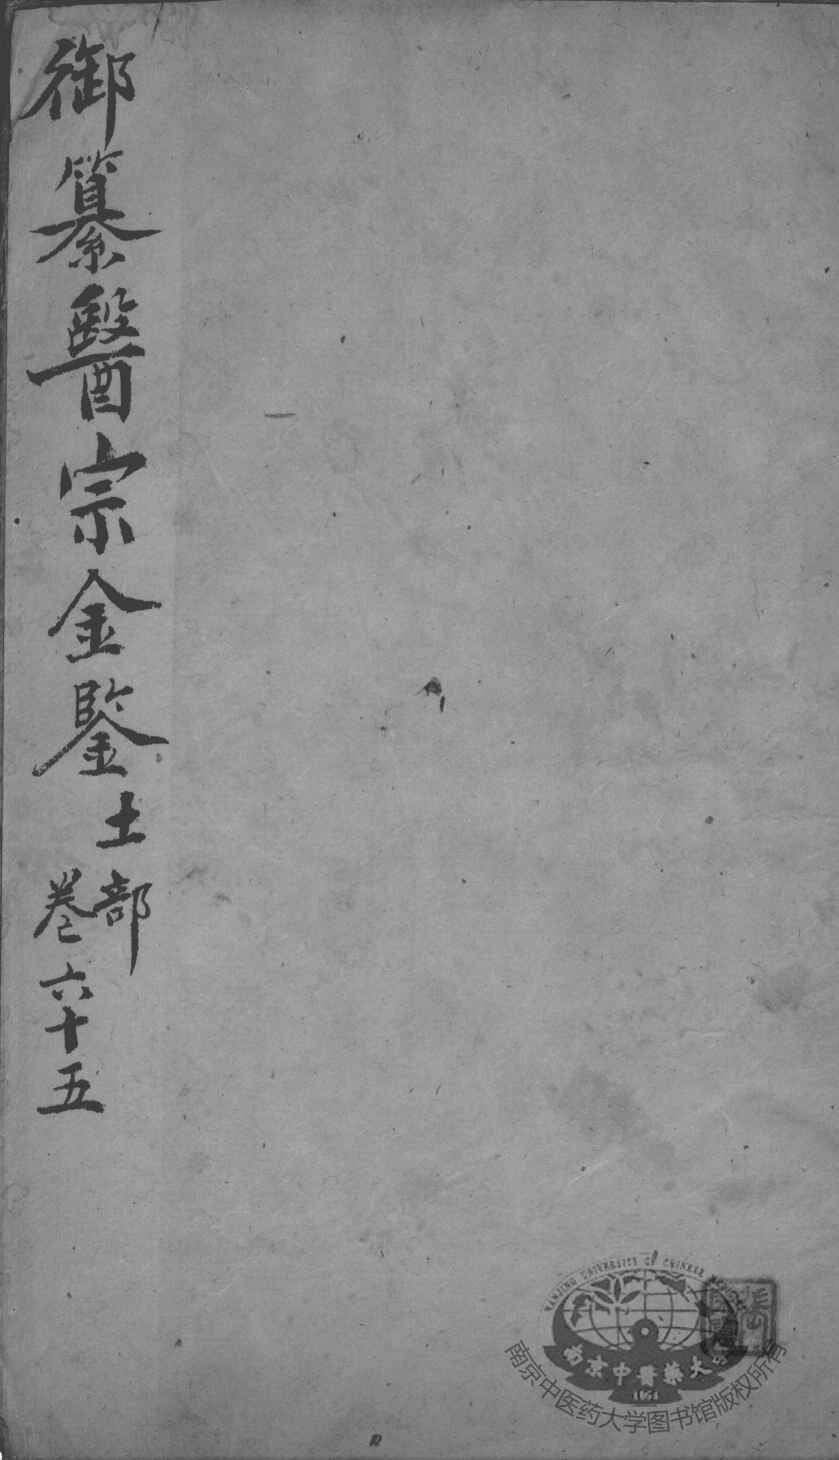 御纂醫宗金鑒土部
卷六十五
NANJING UNIVERSITY OF CHINESE
南京中醫藥大
1954
南京中医药大学图书馆版权所有